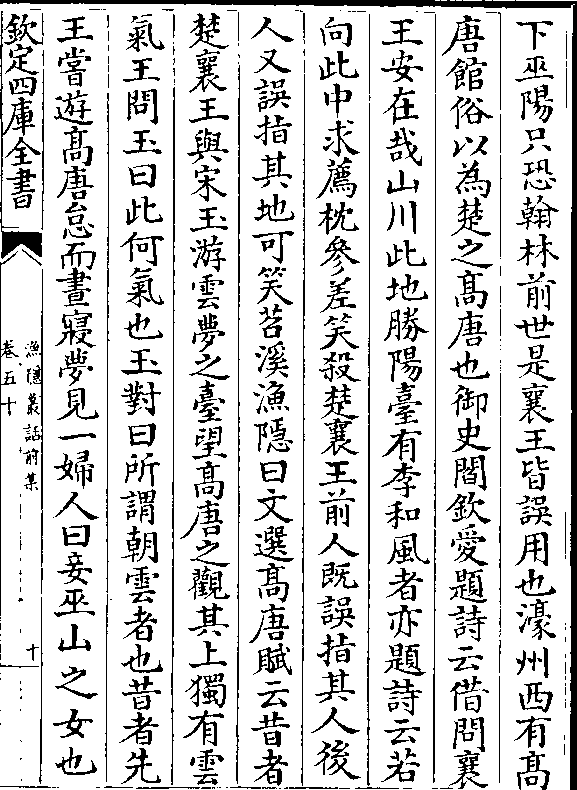 下巫陽只恐翰林前世是襄王皆誤用也濠州西有髙
唐館俗以為楚之髙唐也御史閻欽愛題詩云借問襄
王安在哉山川此地勝陽臺有李和風者亦題詩云若
向此中求薦枕參差笑殺楚襄王前人既誤指其人後
人又誤指其地可笑苕溪漁隱曰文選髙唐賦云昔者
楚襄王與宋玉游雲夢之臺望髙唐之觀其上獨有雲
氣王問玉曰此何氣也玉對曰所謂朝雲者也昔者先
王嘗遊髙唐怠而晝寢夢見一婦人曰妾巫山之女也
欽定四庫全書
漁隱叢話前集
卷五十
十